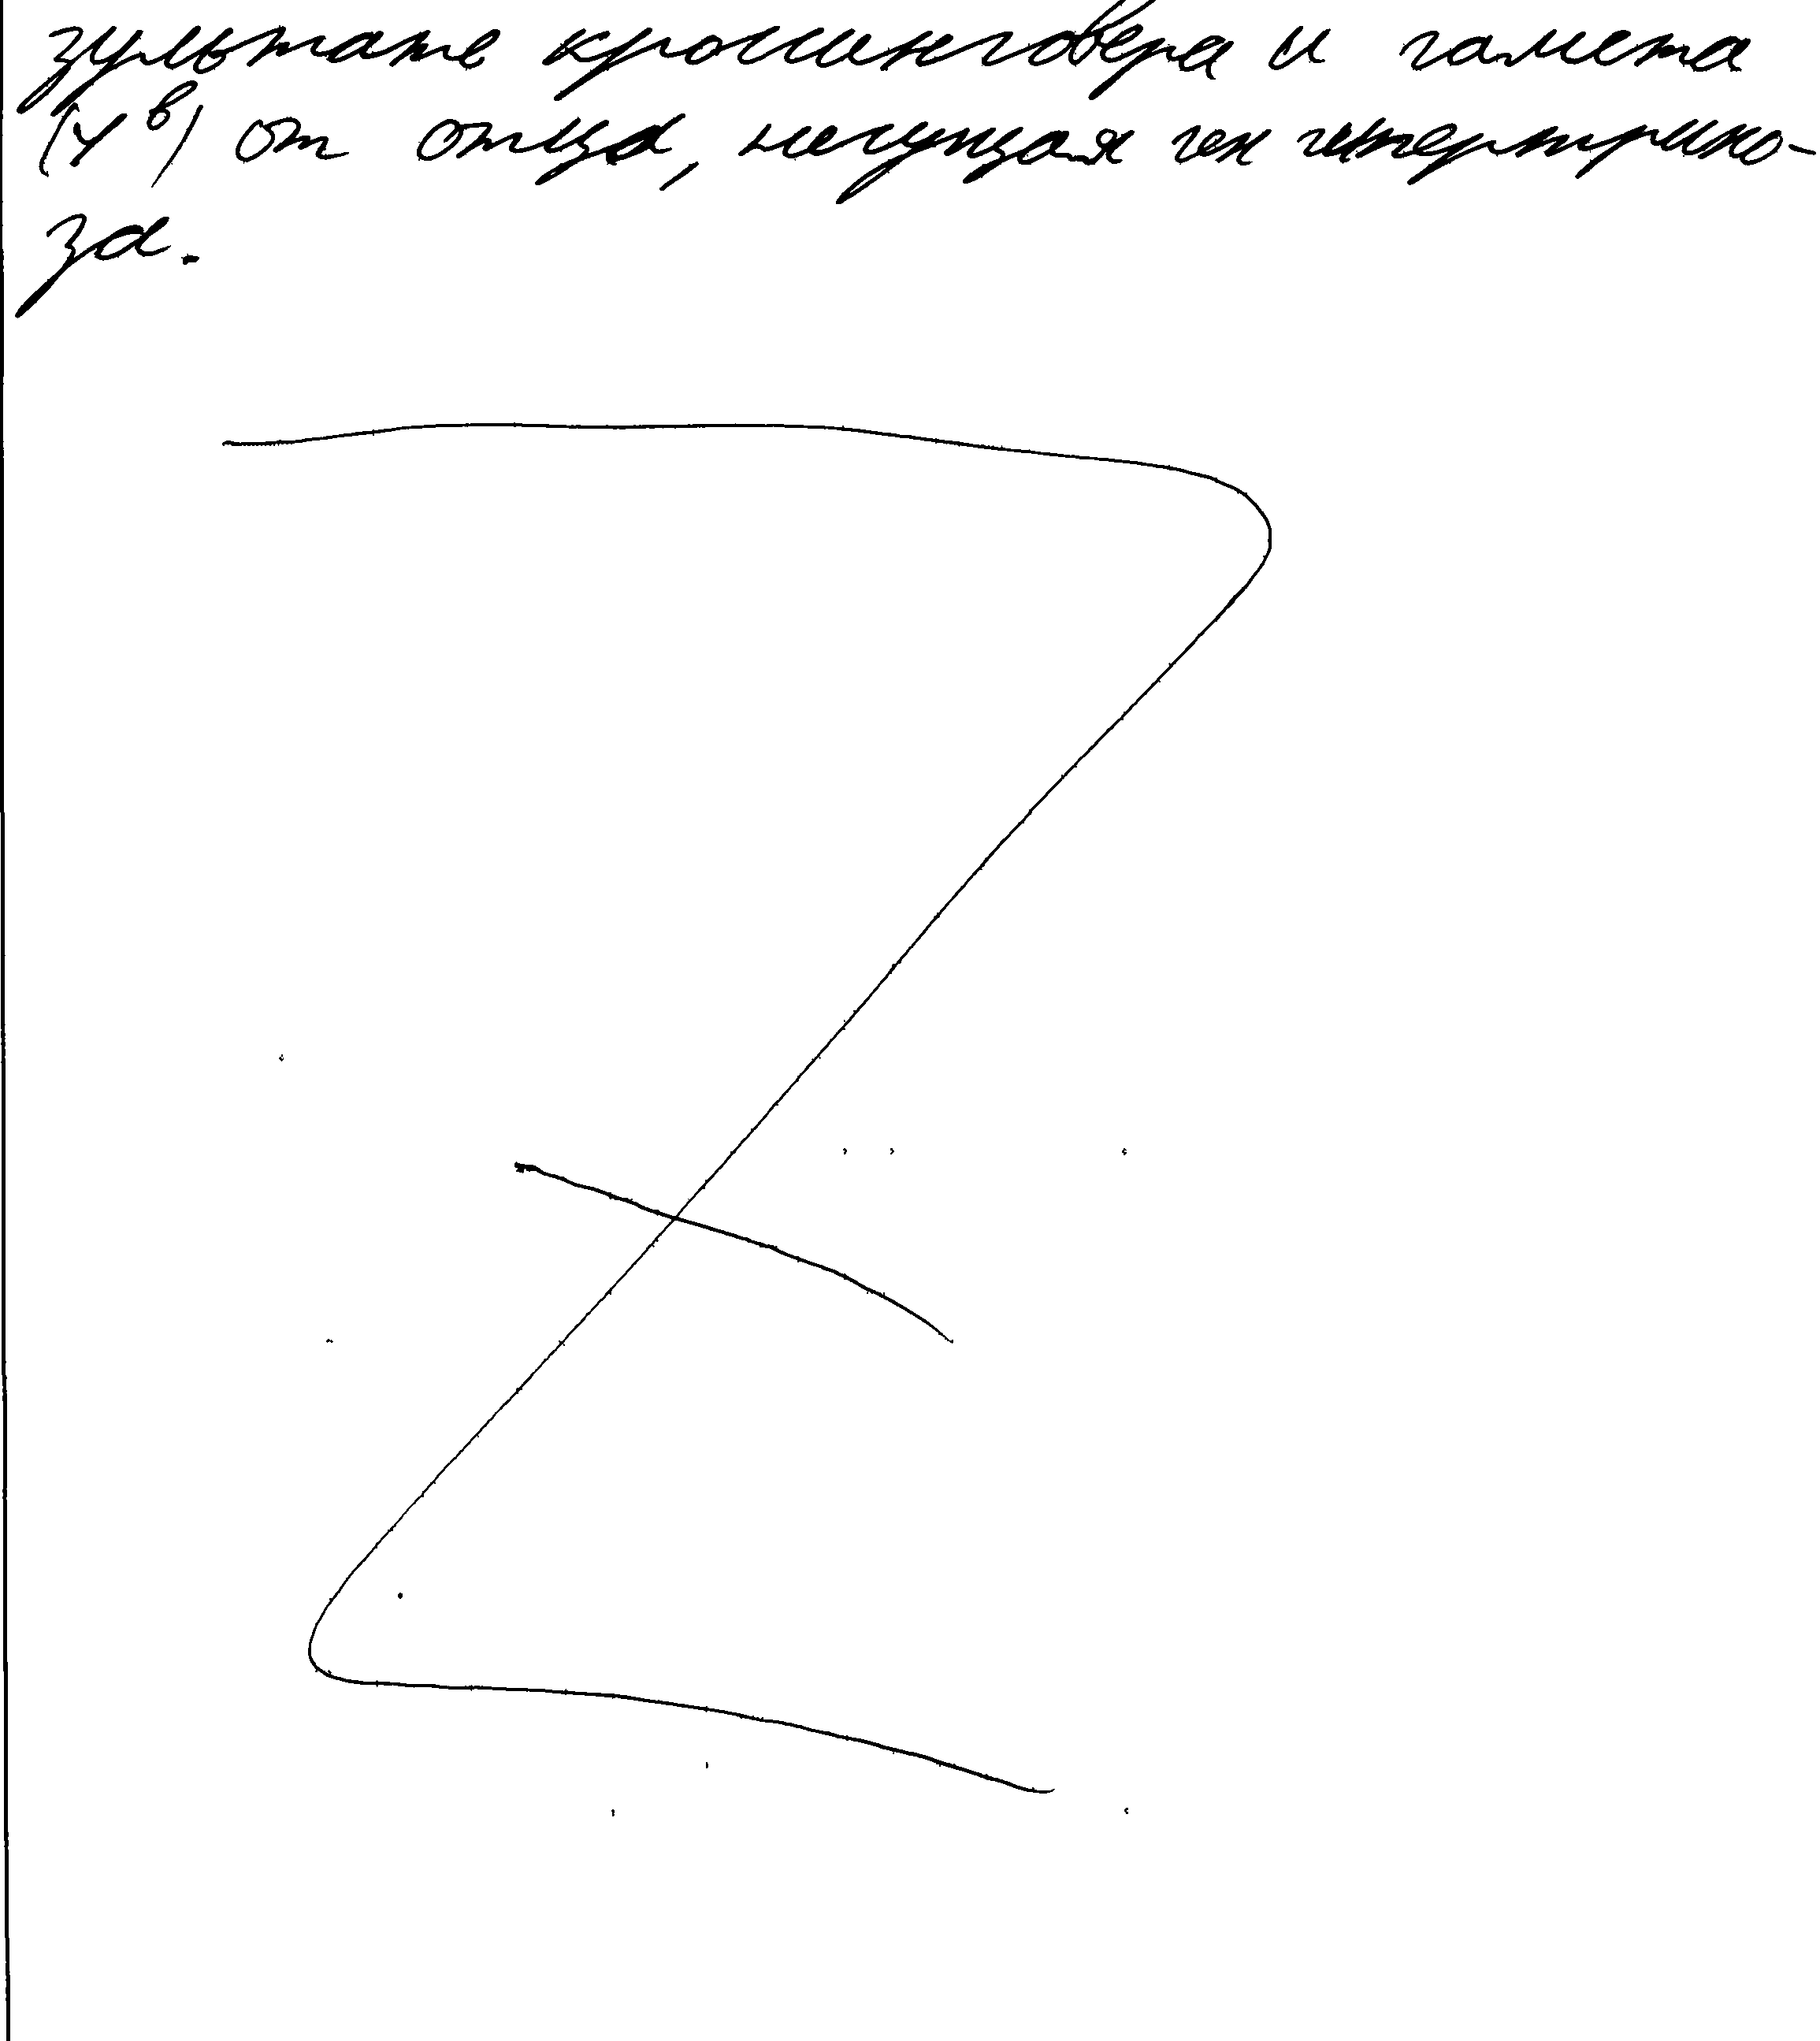 зультате кроссинговера и гамета
(Y^в) от отца, несущая ген гипертрихо-
за.